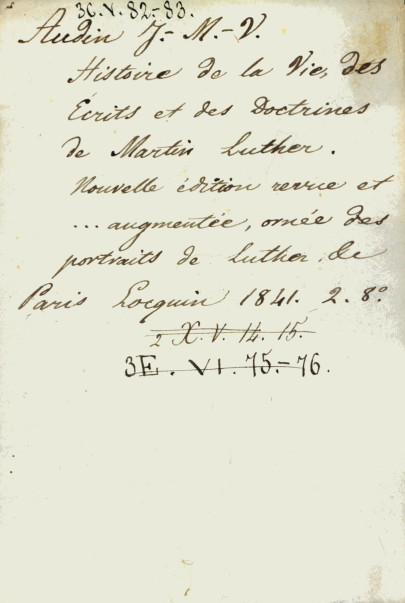 3C.V. 82-83.
Audin J.- M.-V.
Histoire de la Vie, des
Écrits et des Doctrines
de Martin Luther.
Nouvelle édition revue et
... augmentée, ornée des
portraits de Luther, &c
Paris Locquin 1841. 2. 8.°
2 X. V. 14. 15.
3E. VI. 75.-76.